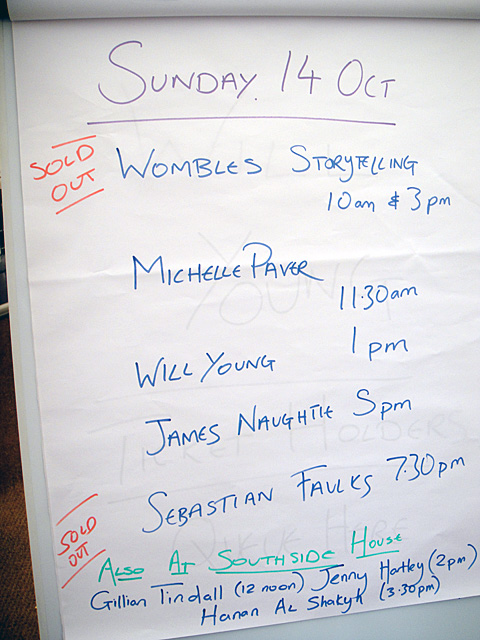 SUNDAY. 14 OCT
SOLD OUT
WOMBLES STORYTELLING
10am & 3pm
MICHELLE PAVER
11.30am
WILL YOUNG 1pm
JAMES NAUGHTIE 5pm
SEBASTIAN FAULKS 7.30pm
SOLD OUT
ALSO AT SOUTHSIDE HOUSE
Gillian Tindall (12 noon) Jenny Hartley (2pm)
Hanan AL Shakyh (3.30pm)